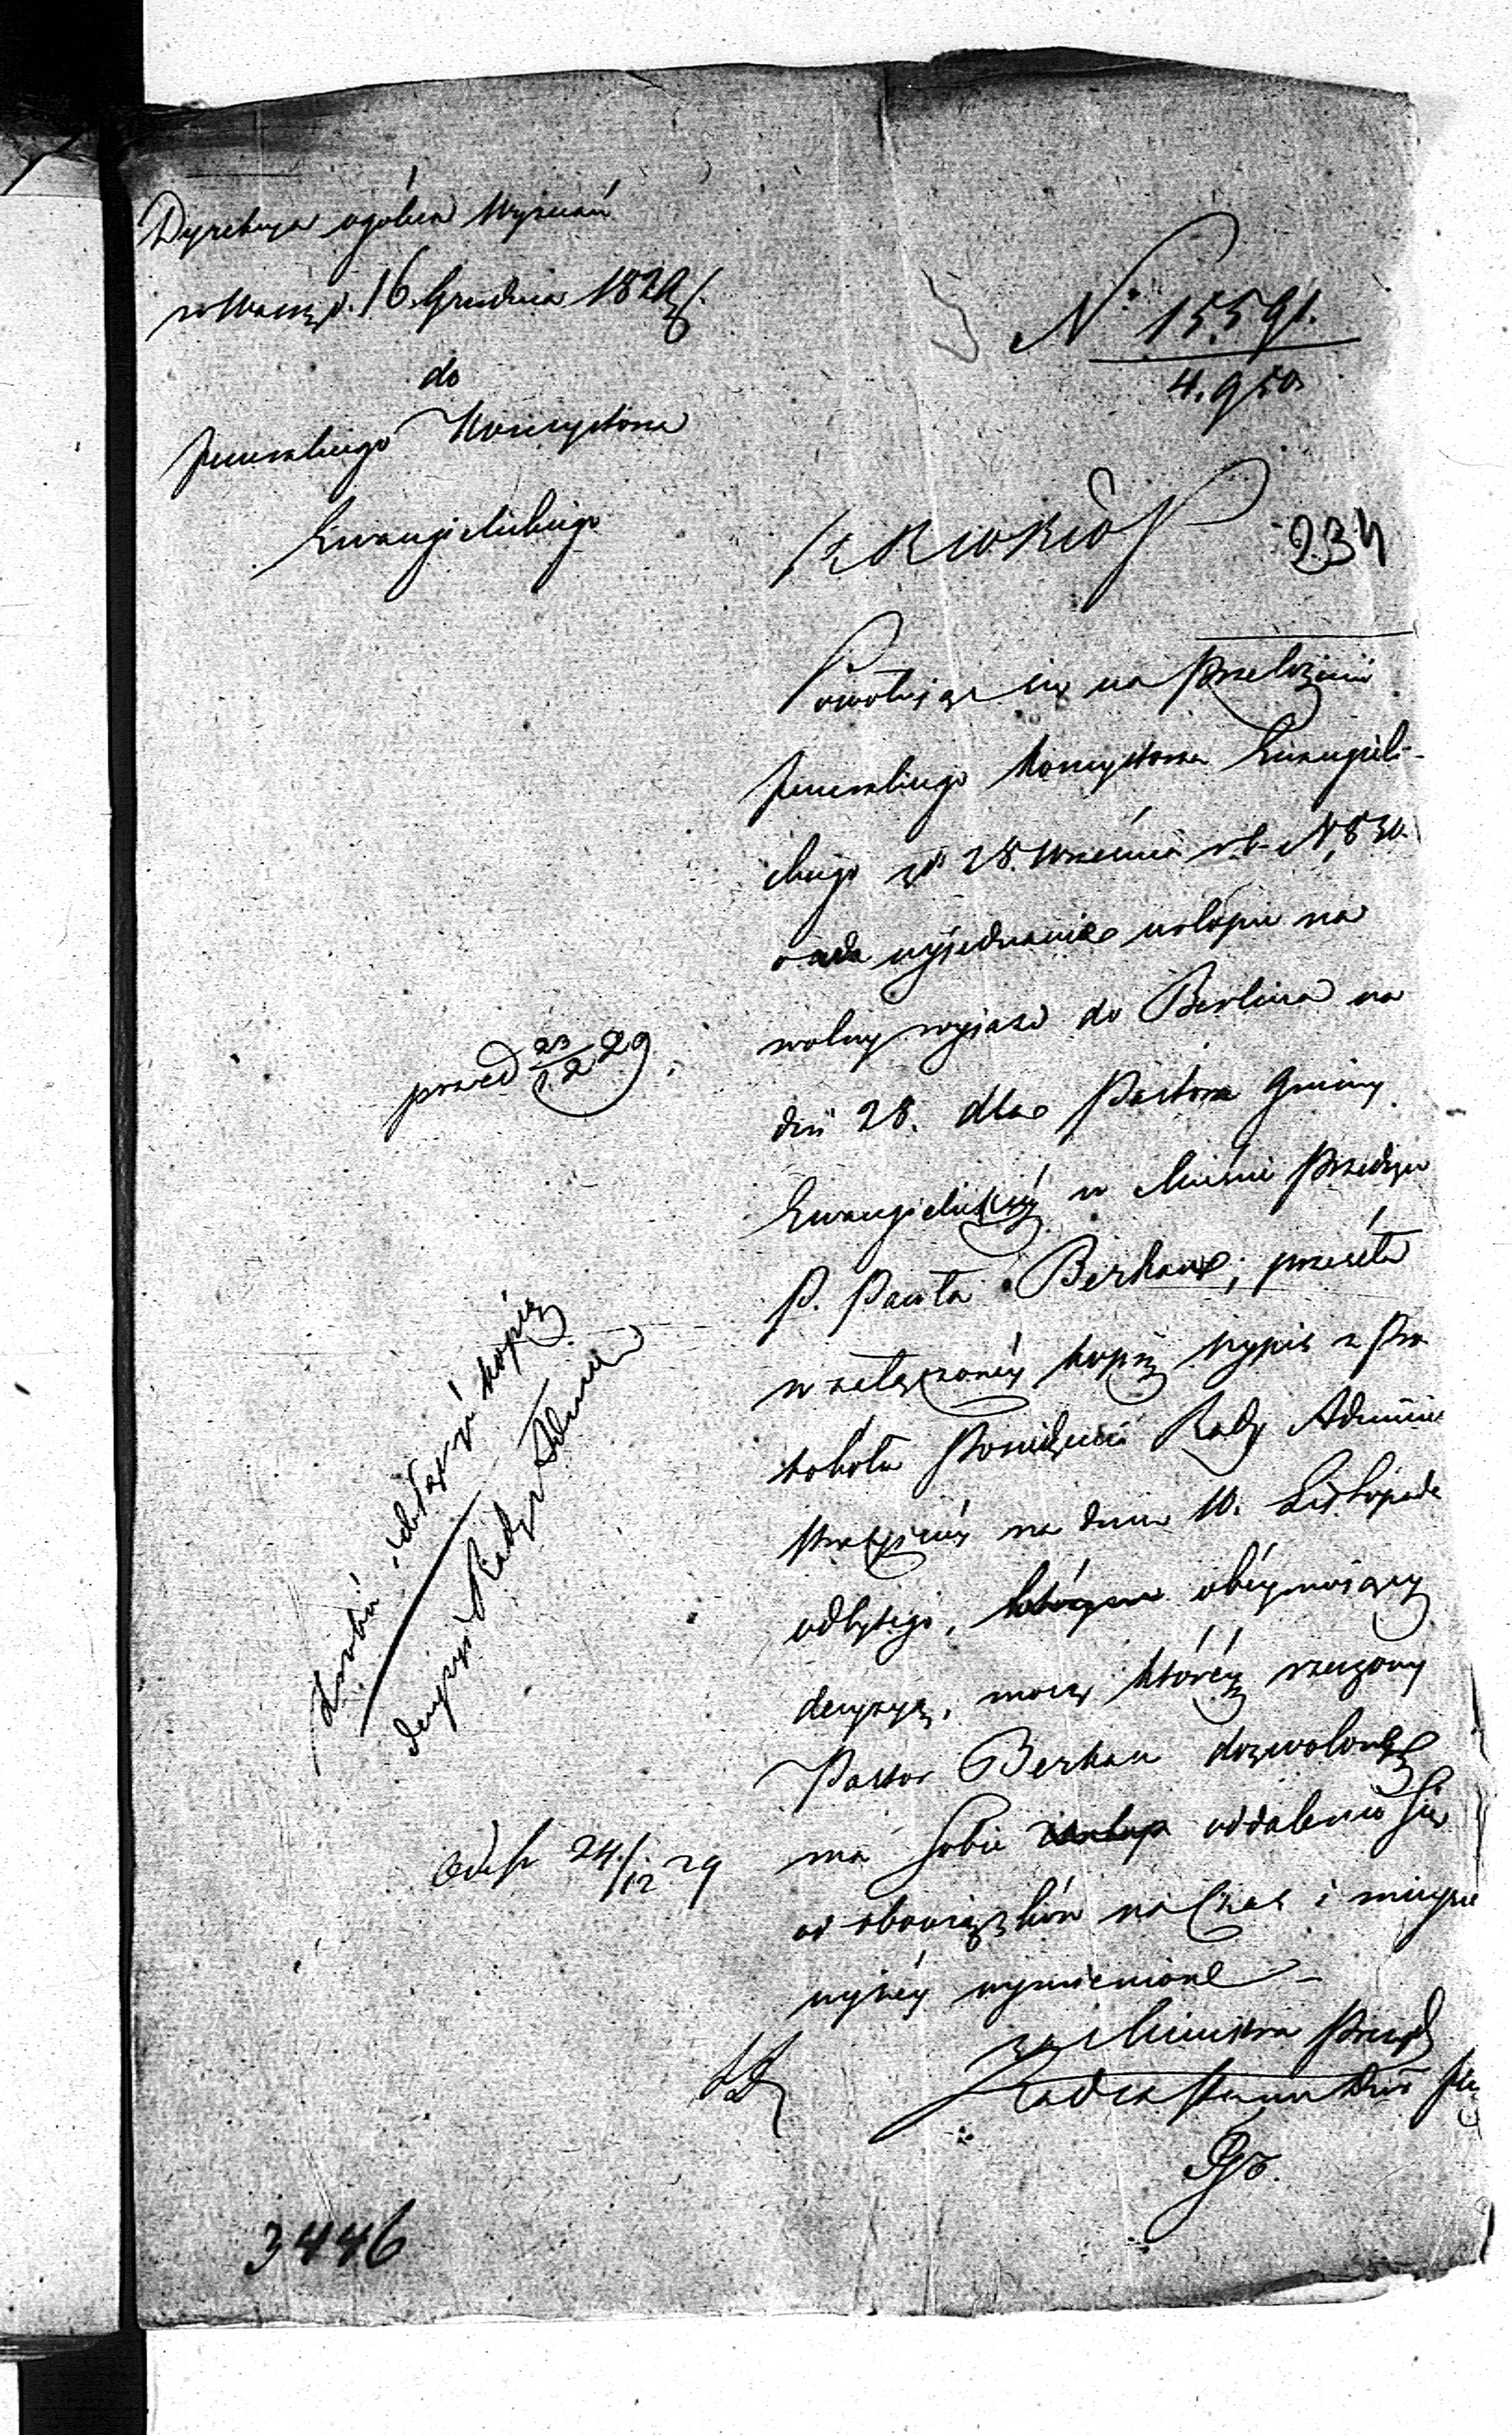 Dyrekcya ogólna Wyznań
w Warsz. d. 16 Grudnia 1829 r.
do
Jeneralnego Konsystorza
Ewangielickiego
N° 15591.
4.950
234
Powołując się na przełożenie
Jeneralnego Konsystorza Ewangieli-
ckiego z d. 28. Września r. b. N. 830.
o wyjednanie urlopu na
wolny wyjazd do Berlina na
dni 28. dla Pastora Gminy
Ewangielickiéj w Mieście Przedczu
P. Pawła Berhau; przesyła
w załączonéj kopii wypis z Pro
tokołu Posiedzenia Rady Admini
stracyinéj na dniu 10. Listopada
odbytego, obéymuiący
decyzyą, mocą któréy rzeczony
Pastor Berhau dozwolone
ma sobie oddalenie się
od obowiązków na Czas i mieysce
wyżéy wymienione
za Ministra Prezyd.
Radca Stanu
prod 23/12 29.
Zrobić i odesłać kopią
decyzyi Rady Admin
24/12 29
3446